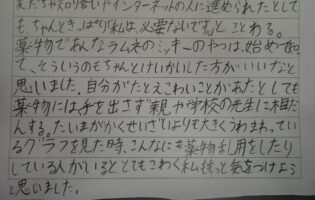 またちや知り合いやインターネットの人に進められたとして
も、ちゃんときっぱり「私は、必要ないです」とことわる。
薬物であんなラムネのミッキーのやつは、始めて知って
、そういうのもちゃんとけいかいした方がいいなと
思いました。自分がたとえこわいことがあたとしても
薬物には手を出さず親や学校の先生に相だ
んする。たいまがかくせいざいよりも大きくうわまわってい
るグラフを見た時、こんなにも薬物乱用をしたり
している人がいると、とてもこわく私も、もっと気をつけよう
と思いました。